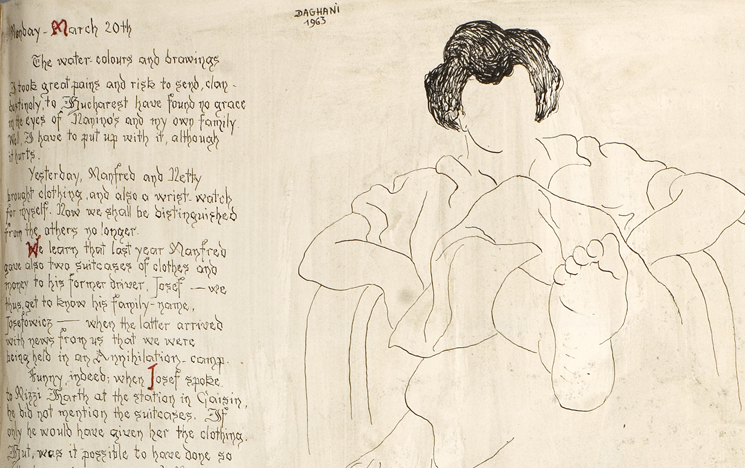 DAGHANI
1963
Monday - March 20th
The water-colours and drawings
I took great pains and risk to send, clan-
destinely, to Bucharest have found no grace
in the eyes of Nanino's and my own family.
Well, I have to put up with it, although
it hurts.
Yesterday, Manfred and Netty
brought clothing, and also a wrist-watch
for myself. Now we shall be distinguished
from the others no longer.
We learn that last year Manfred
gave also two suitcases of clothes and
money to his former driver, Josef — we
thus, get to know his family-name,
Josefowicz — when the latter arrived
with news from us that we were
being held in an Annihilation-camp.
Funny, indeed; when Josef spoke
to Mizzi Harth at the station in Gaisin,
he did not mention the suitcases. If
only he would have given her the clothing.
But, was it possible to have done so